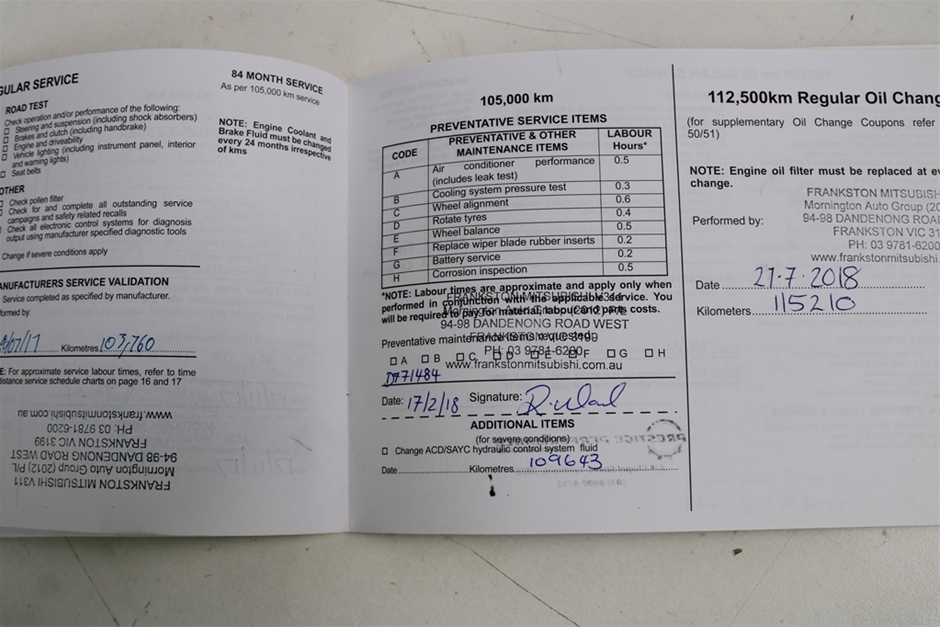 GULAR SERVICE
ROAD TEST
Check operation and/or performance of the following:
Steering and suspension (including shock absorbers)
Brakes and clutch (including handbrake)
Engine and driveability
Vehicle lighting (including instrument panel, interior
and warning lights)
Seat belts
OTHER
Check pollen filter
Check for and complete all outstanding service
campaigns and safety related recalls
Check all electronic control systems for diagnosis
output using manufacturer specified diagnostic tools
Change if severe conditions apply
ANUFACTURERS SERVICE VALIDATION
Service completed as specified by manufacturer.
formed by:
/07/17 Kilometres 103,760
E: For approximate service labour times, refer to time
distance service schedule charts on page 16 and 17
www.frankstonmitsubishi.com.au
PH: 03 9781-6200
FRANKSTON VIC 3199
94-98 DANDENONG ROAD WEST
Mornington Auto Group (2012) P/L
FRANKSTON MITSUBISHI V311
84 MONTH SERVICE
As per 105,000 km service
NOTE: Engine Coolant and
Brake Fluid must be changed
every 24 months irrespective
of kms
105,000 km
PREVENTATIVE SERVICE ITEMS
CODE PREVENTATIVE & OTHER MAINTENANCE ITEMS LABOUR Hours*
A Air conditioner performance (includes leak test) 0.5
B Cooling system pressure test 0.3
C Wheel alignment 0.6
D Rotate tyres 0.4
E Wheel balance 0.5
F Replace wiper blade rubber inserts 0.2
G Battery service 0.2
H Corrosion inspection 0.5
*NOTE: Labour times are approximate and apply only when
performed in conjunction with the applicable service. You
will be required to pay for material, labour and parts costs.
FRANKSTON MITSUBISHI V311
Mornington Auto Group (2012) P/L
94-98 DANDENONG ROAD WEST
FRANKSTON VIC 3199
Preventative maintenance items requested:
PH: 03 9781-6200
A B C D E F G H
www.frankstonmitsubishi.com.au
Date: 17/2/18 Signature:
ADDITIONAL ITEMS
(for severe conditions)
Change ACD/SAYC hydraulic control system fluid
Date Kilometres 109643
PRESTIGE
112,500km Regular Oil Chang
(for supplementary Oil Change Coupons refer
50/51)
NOTE: Engine oil filter must be replaced at ev
change.
FRANKSTON MITSUBISH
Mornington Auto Group (20
Performed by: 94-98 DANDENONG ROAD
FRANKSTON VIC 31
PH: 03 9781-6200
www.frankstonmitsubishi.
Date 27.7.2018
Kilometers 115210